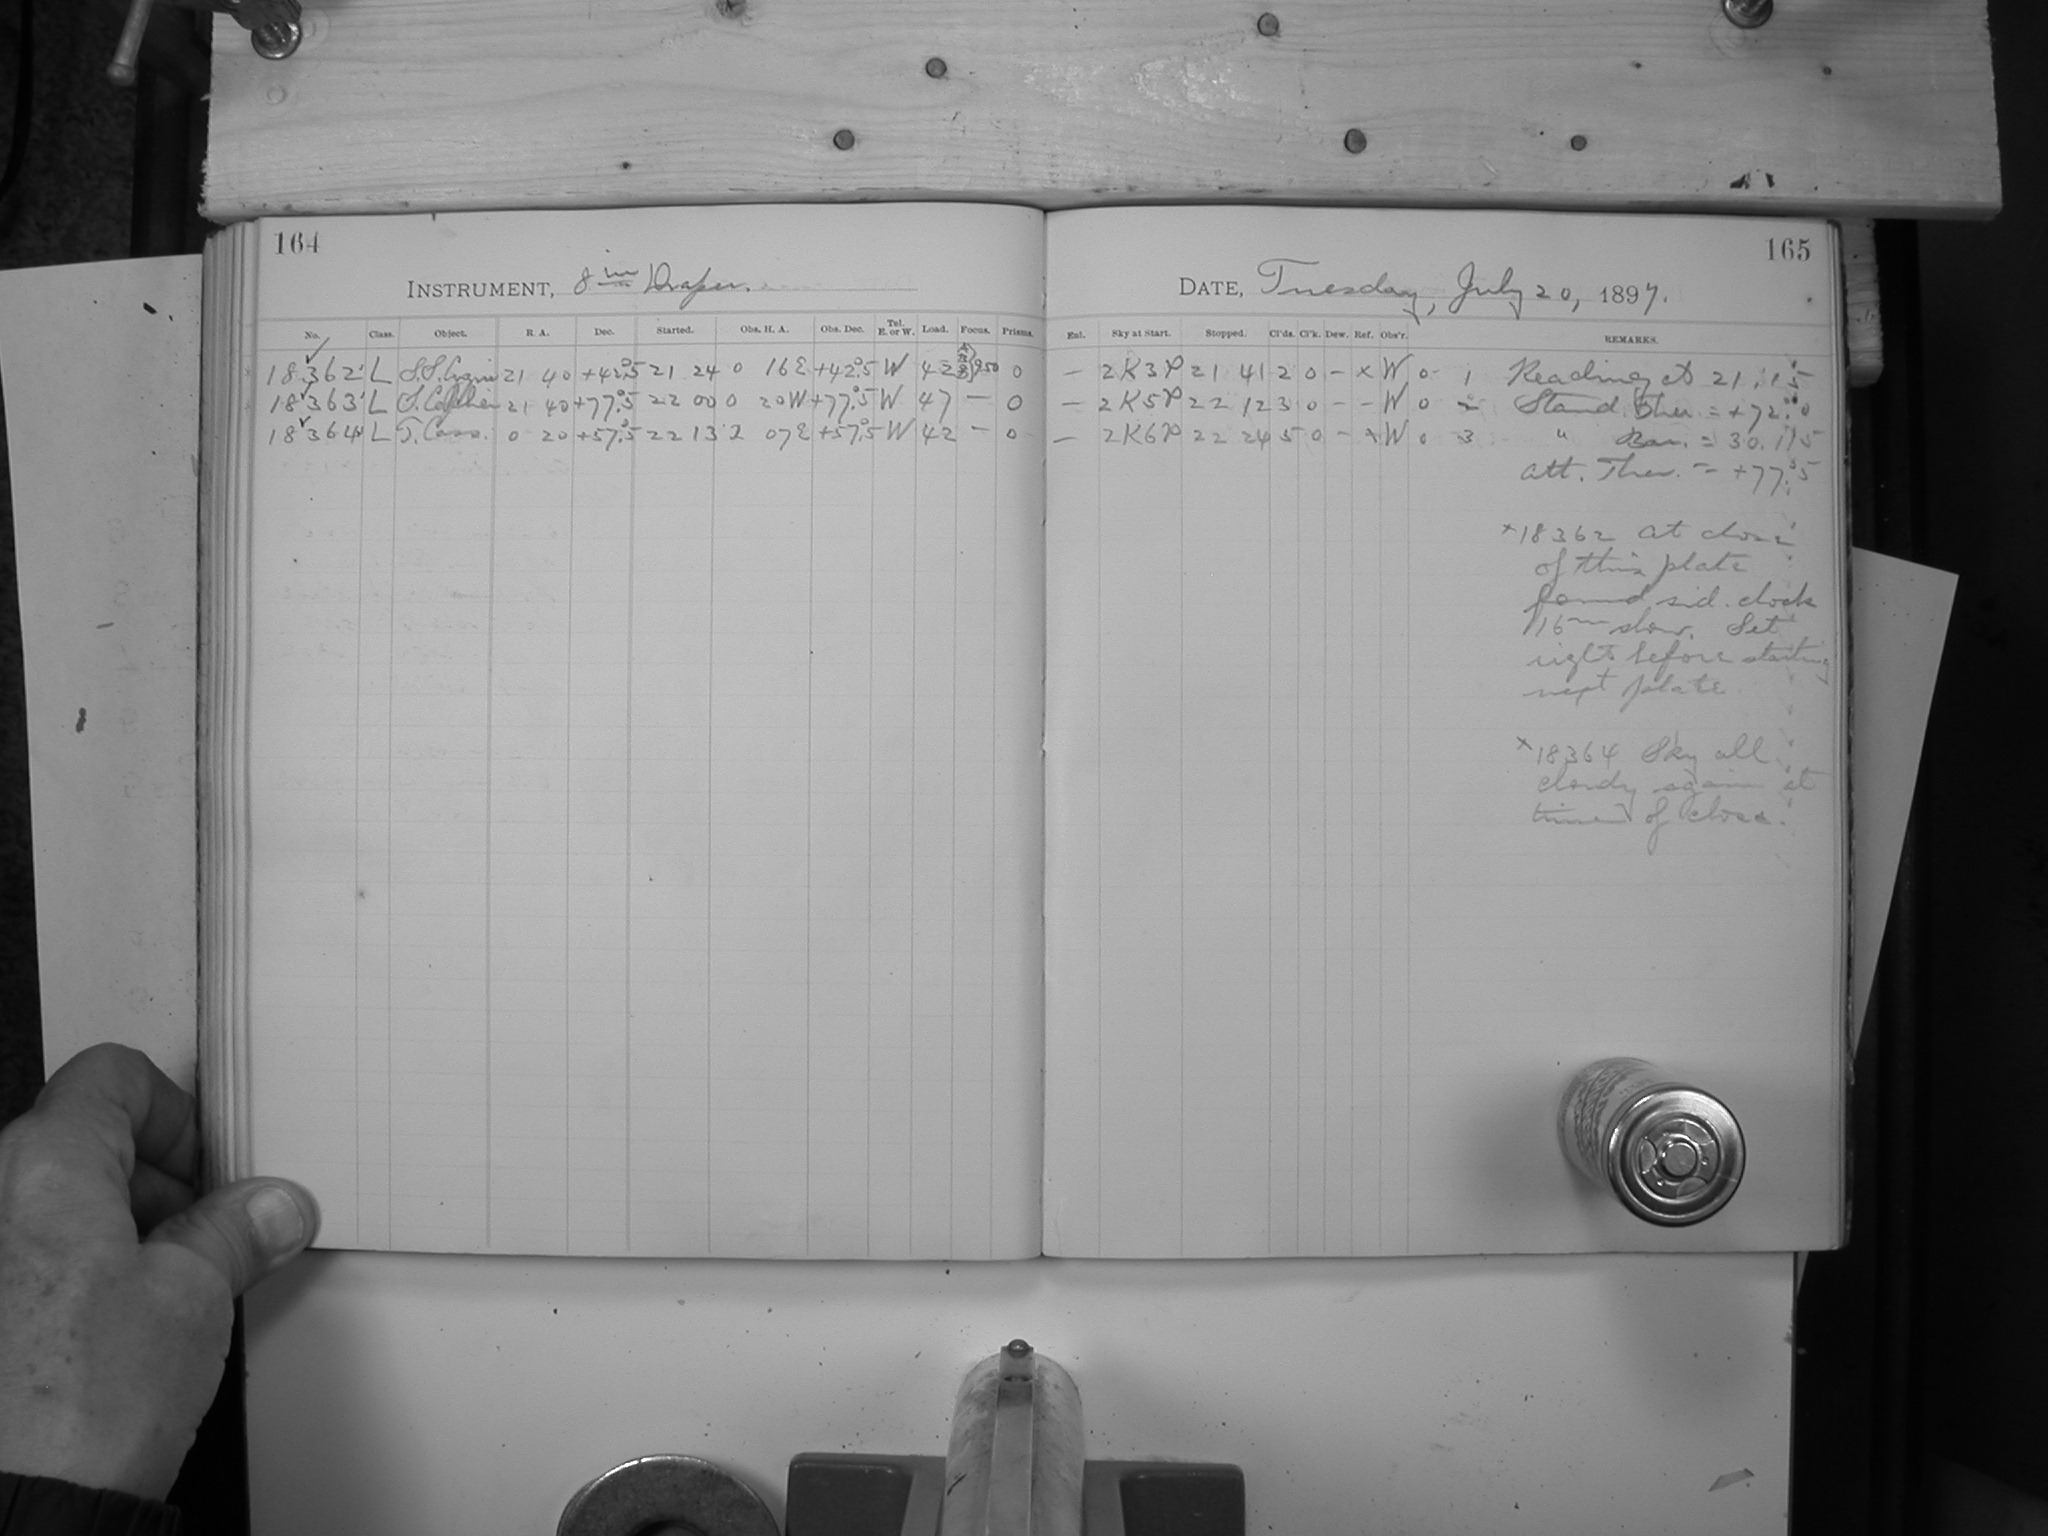 164
INSTRUMENT, 8 in Draper.
No. Class. Object. R. A. Dec. Started. Obs. H. A. Obs. Dec. Tel. E. or W. Load. Focus. Prisms.
18362 L S.S. Cygni 21 40 +42°.5 21 24 0 16 E +42°.5 W 42 9.50 0
18363 L S. Cephei 21 40 +77°.5 22 00 0 20 W +77°.5 W 47 — 0
18364 L T. Cass. 0 20 +57°.5 22 13 2 07 E +57°.5 W 42 — 0
165
DATE, Tuesday, July 20, 1897.
Enl. Sky at Start. Stopped. Cl'ds. Cl'k. Dew. Ref. Obs'r. REMARKS.
— 2K3P 21 41 2 0 – × W 0 1 Reading at 21.15
— 2K5P 22 12 3 0 – – W 0 2 Stand. Ther. = +72.°0
— 2K6P 22 24 5 0 – × W 0 3 " Bar. = 30.175
Att. Ther. = +77.°5
×18362 At close
of this plate
found sid. clock
16m slow. Set
right before starting
next plate
×18364 Sky all
cloudy again at
time of close.